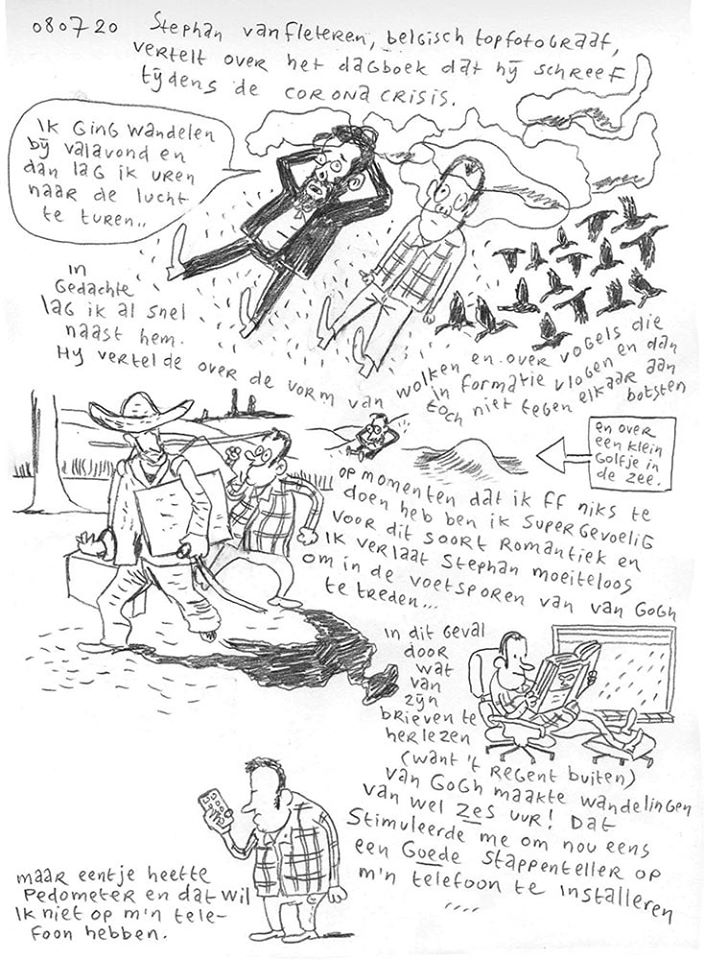 080720 Stephan vanfleteren, belgisch topfotograaf,
vertelt over het dagboek dat hij schreef
tijdens de coronacrisis.
Ik ging wandelen
bij valavond en
dan lag ik uren
naar de lucht
te turen..
In
gedachte
lag ik al snel
naast hem.
Hy vertelde over de vorm van wolken en over vogels die
in formatie vlogen en dan
toch niet tegen elkaar aan
botsten
en over
een klein
golfje in
de zee.
op momenten dat ik ff niks te
doen heb ben ik supergevoelig
voor dit soort romantiek en
ik verlaat Stephan moeiteloos
om in de voetsporen van van Gogh
te treden...
in dit geval
door
wat
van
zijn
brieven te
herlezen
(want 't regent buiten)
van Gogh maakte wandelingen
van wel zes uur! Dat
stimuleerde me om nou eens
een goede stappenteller op
m'n telefoon te installeren
....
maar eentje heette
Pedometer en dat wil
ik niet op m'n tele-
foon hebben.